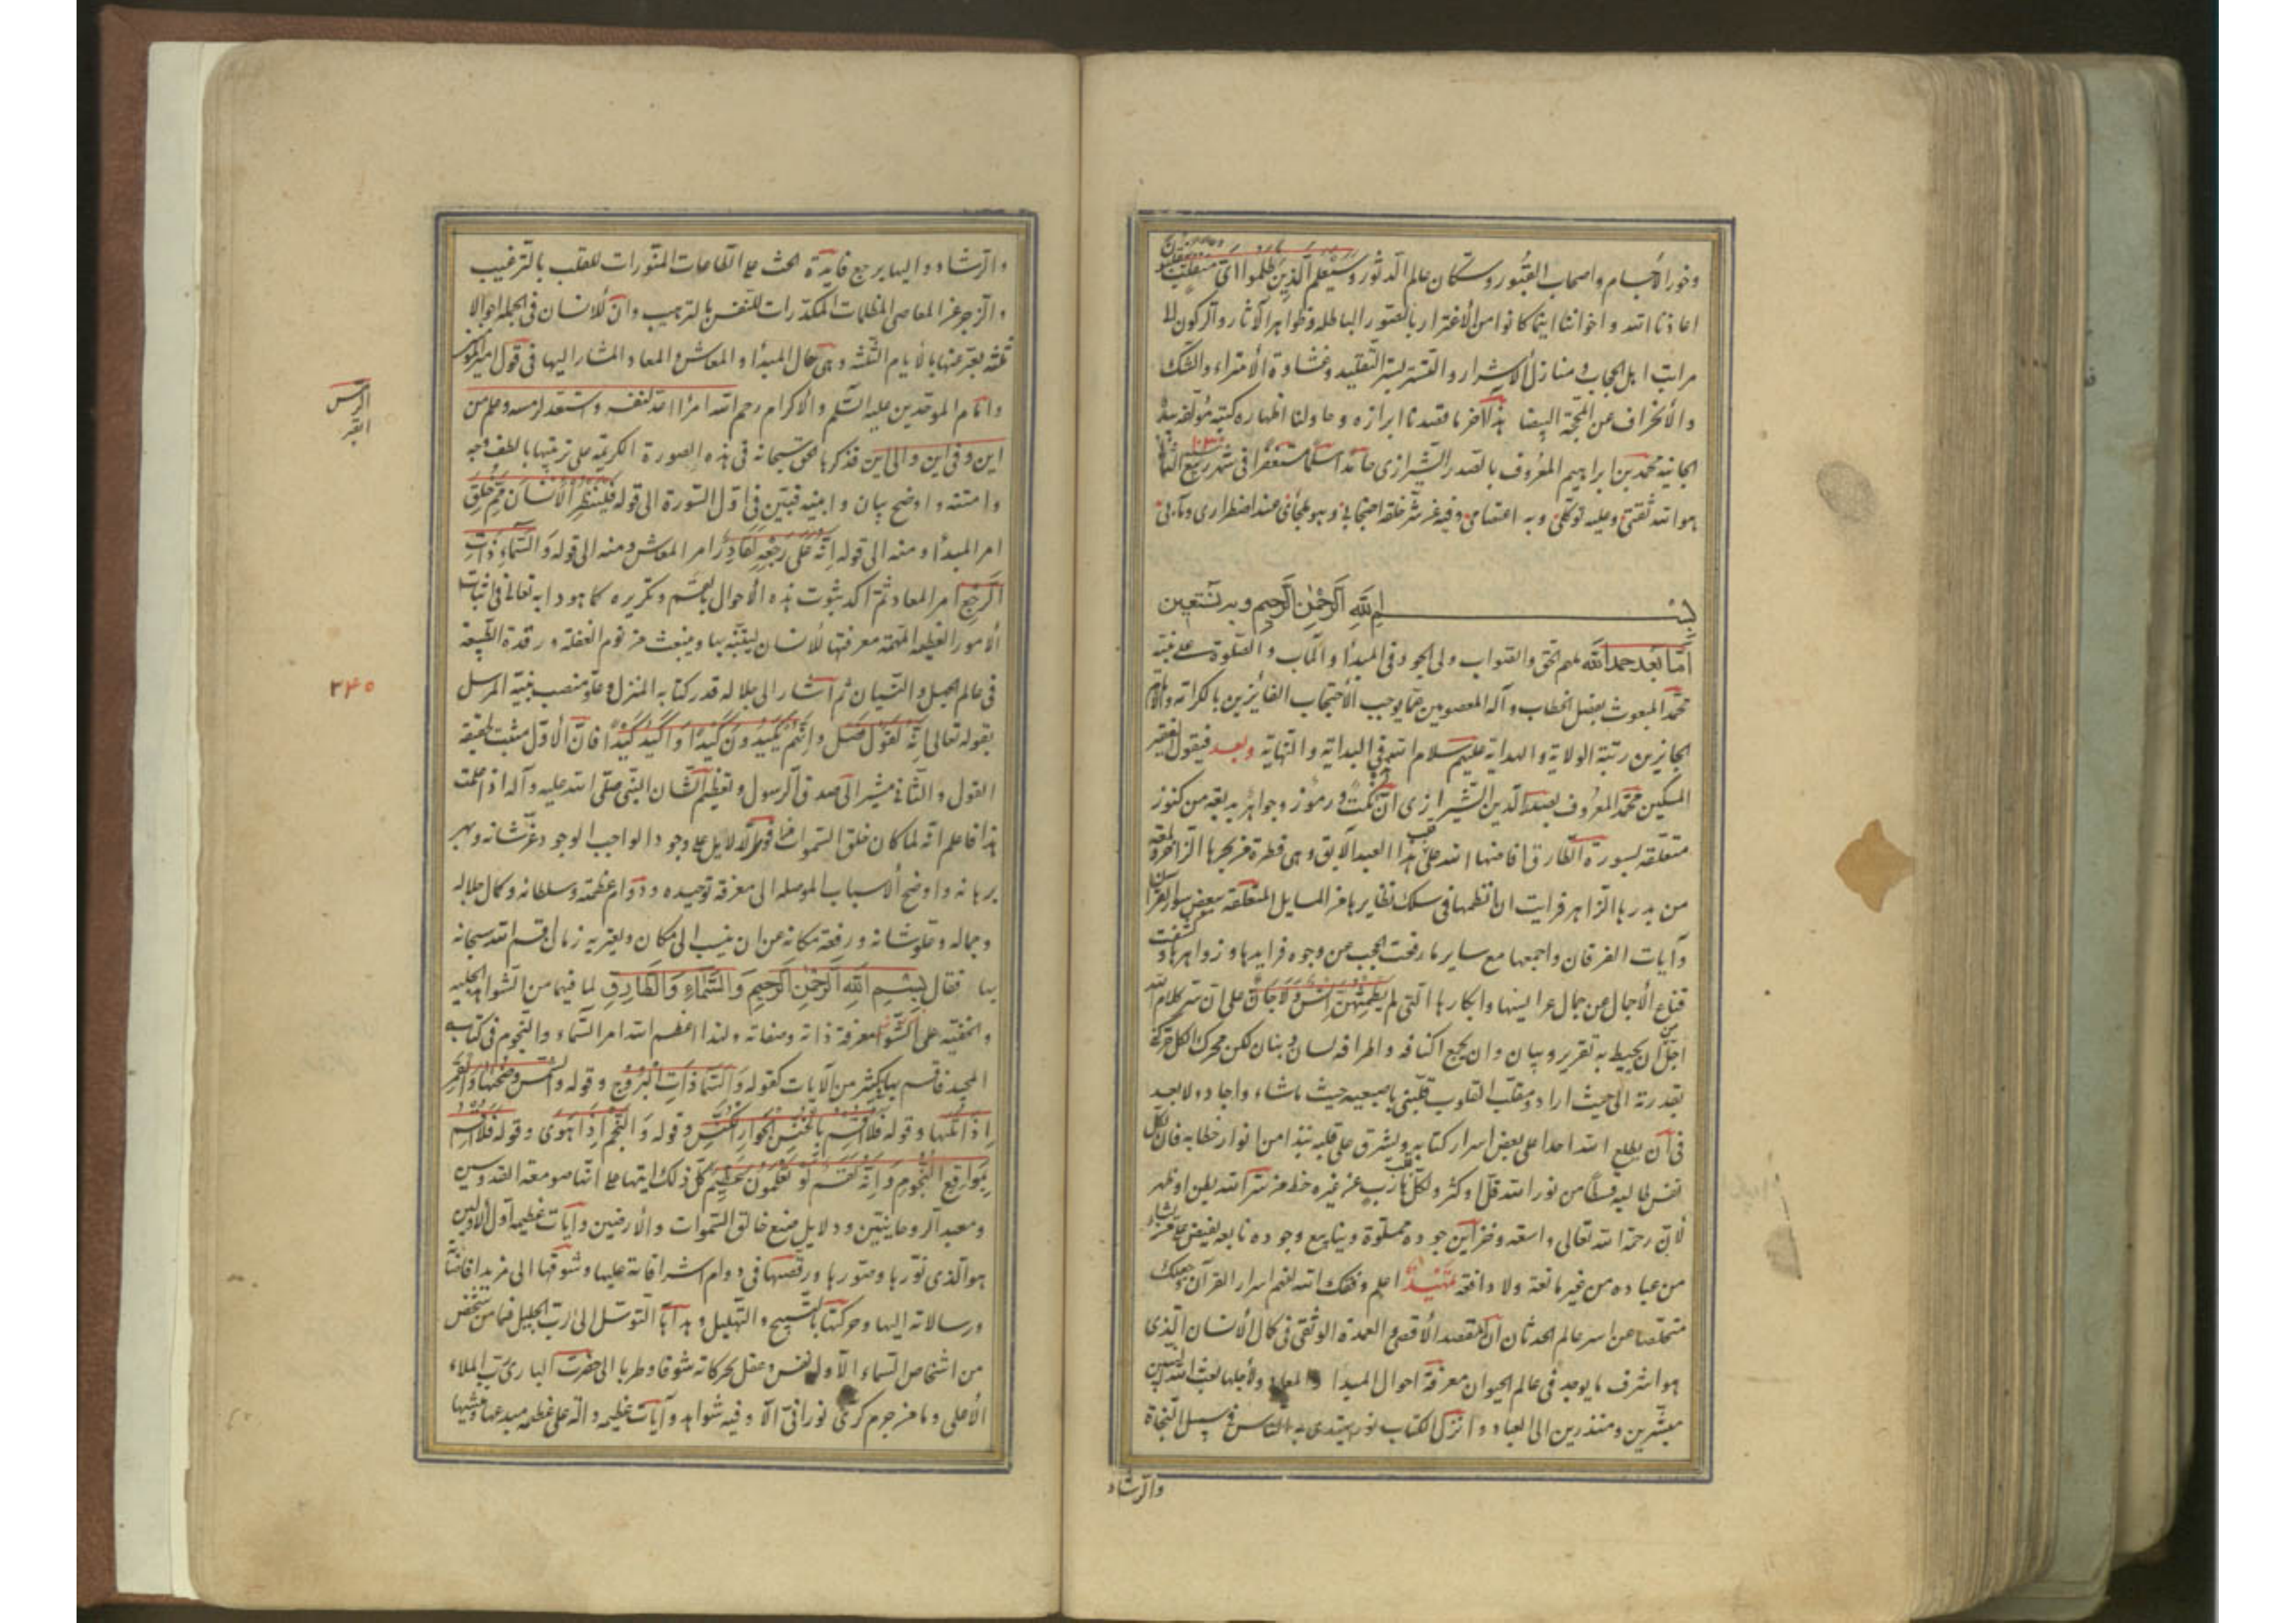 وخور الأجسام واصحاب القبور وسكان عالم الدثور وسيعلم الذين ظلموا اى منقلب ينقلبون
اعاذنا الله واخواننا اينما كانوا من الأغترار بالصور الباطله وظواهر الآثار والركون الى
مراتب اهل الحجاب ومنازل الاشرار والتستر بستر التقليد وغشاوة الأمتراء والشك
والأنحراف عن المحجة البيضا هذا آخر ما قصدنا ابرازه وحاولنا اظهاره كتبه مؤلفه بيده
الجانيه محمد بن ابراهيم المعروف بالصدر الشيرازى حامدا مسلما مستغفرا فى شهر ربيع الثانى ١٠٣٠
هو الله ثقتى وعليه توكلى وبه اعتصامى وفيه عن شر خلقه احتجابى وهو ملجأئى عند اضطرارى ومآبى
بسم الله الرحمن الرحيم وبه نستعين
اما بعد حمد الله ملهم الحق والصواب ولى الجود فى المبدأ والمآب والصلوة على نبيه
محمد المبعوث بفصل الخطاب وآله المعصومين عما يوجب الأحتجاب الفائزين بالكرامة
الحايزين رتبة الولاية والهداية عليهم سلام الله فى البداية والنهاية وبعد فيقول الفقير
المسكين محمد المعروف بصدر الدين الشيرازى ان هذه نكت ورموز وجواهر بديعه من كنوز
متعلقه بسورة الطارق افاضها الله على قلب هذا العبد الآبق وهى قطرة من بحرها الزاخر ولمعة
من بدرها الزاهر فرايت ان انظمها فى سلك نظايرها من المسايل المتعلقة ببعض سور القرآن
وآيات الفرقان واجمعها مع ساير ما رفعت الحجب عن وجوه فرايدها وزواهرها وكشفت
قناع الأجمال عن جمال عرايسها وابكارها التى لم يطمثهن انس ولا جان على ان سر كلام الله
اجل من ان يحيط به تقرير وبيان وان يجمع اكنافه واطرافه لسان وبنان لكن محرك الكل حركنى
بقدرته الى حيث اراد ومقلب القلوب قلبنى باصبعيه حيث ماشاء واجاد ولا بعيد
فى ان يطلع الله احدا على بعض اسرار كتابه ويشرق على قلبه نبذا من انوار خطابه فان لكل
نفس طالبه قسطا من نور الله قل او كثر ولكل قلب هارب عن غيره حظ من سر الله بطن او ظهر
لأن رحمة الله تعالى واسعة وخزاين جوده مملوة وينابيع وجوده نابعه يفيض على من يشاء
من عباده من غير مانعة ولا دافعة تمهيد اعلم وفقك الله لفهم اسرار القرآن وجعلك
متخلصا عن اسر عالم الحدثان ان المقصد الأقصى والعمدة الوثقى فى كمال الأنسان الذى
هو اشرف ما يوجد فى عالم الحيوان معرفة احوال المبدأ والمعاد ولأجلها بعث الله النبيين
مبشرين ومنذرين الى العباد وانزل الكتاب نورا يهتدى به الناس فى سبيل النجاة
والرشاد
والرشاد واليها يرجع فايدة الحث على الطاعات المنورات للقلب بالترغيب
والزجر عن المعاصى المظلمات المكدرات للنفس بالترهيب وان للأنسان فى الجمله احوالا
ثلثه يعبر عنها بالأيام الثلثه وهى حال المبدأ والمعاش والمعاد المشار اليها فى قول امير المؤمنين
وامام الموحدين عليه السلم والأكرام رحم الله امرأ اعد لنفسه واستعد لرمسه وعلم من
اين وفى اين والى اين فذكرها الحق سبحانه فى هذه الصورة الكريمة على ترتيبها بالطف وجه
الرمس
القبر
وامتنه واوضح بيان وابينه فبين فى اول السورة الى قوله فلينظر الأنسان مم خلق
امر المبدأ ومنه الى قوله انه على رجعه لقادر امر المعاش ومنه الى قوله والسماء ذات
الرجع امر المعاد ثم اكد ثبوت هذه الأحوال بقسم وتكريره كما هو دابه تعالى فى اثبات
الأمور العظيمه المهمة معرفتها للأنسان ليتنبه بها وينبعث من نوم الغفلة ورقدة الطبيعة
فى عالم الجهل والنسيان ثم اشار الى جلاله قدر كتابه المنزل وعلو منصب نبيه المرسل
٢٤٥
بقوله تعالى انه لقول فصل وانهم يكيدون كيدا واكيد كيدا فان الأول مثبت لحقيقه
القول والثانى مشير الى صدق الرسول وتعظيم الشان النبى صلى الله عليه وآله اذا علمت
هذا فاعلم انه لما كان خلق السموات من اقوى الدلايل على وجود الواجب الوجود عز شانه وبهر
برهانه واوضح الأسباب الموصله الى معرفة توحيده ودوام عظمته وسلطانه وكمال جلاله
وجماله وعلو شانه ورفعة مكانه عن ان ينسب الى مكان ويعتريه زمان اقسم الله سبحانه
بها فقال بسم الله الرحمن الرحيم والسماء والطارق لما فيها من الشواهد الجليه
والخفيه على معرفة ذاته وصفاته ولهذا اعظم الله امر السماء والنجوم فى كتابه
المجيد فاقسم بها بكثير من الآيات كقوله والسماء ذات البروج وقوله والشمس وضحيها والقمر
اذا تليها وقوله فلا اقسم بالخنس الجوار الكنس وقوله والنجم اذا هوى وقوله فلا اقسم
بمواقع النجوم وانه لقسم لو تعلمون عظيم كل ذلك لتنبيها على انها صومعة القدوسين
ومعبد الروحانيين ودلايل صنع خالق السموات والأرضين وآيات عظيمه اول الأولين
هو الذى نورها وصورها ورقصها فى دوام اشراقاته عليها وشوقها الى مزيد افاضاته
ورسالاته اليها وحركتها بالتسبيح والتهليل وهداها التوسل الى الرب الجليل فما من شخص
من اشخاص السماء الا وله نفس وعقل يحركانه شوقا وطربا الى حضرت البارى رب الملاء
الأعلى وما من جرم كرى نورانى الا وفيه شواهد وآيات عظيمه داله على عظمه مبدعها ومنشيها